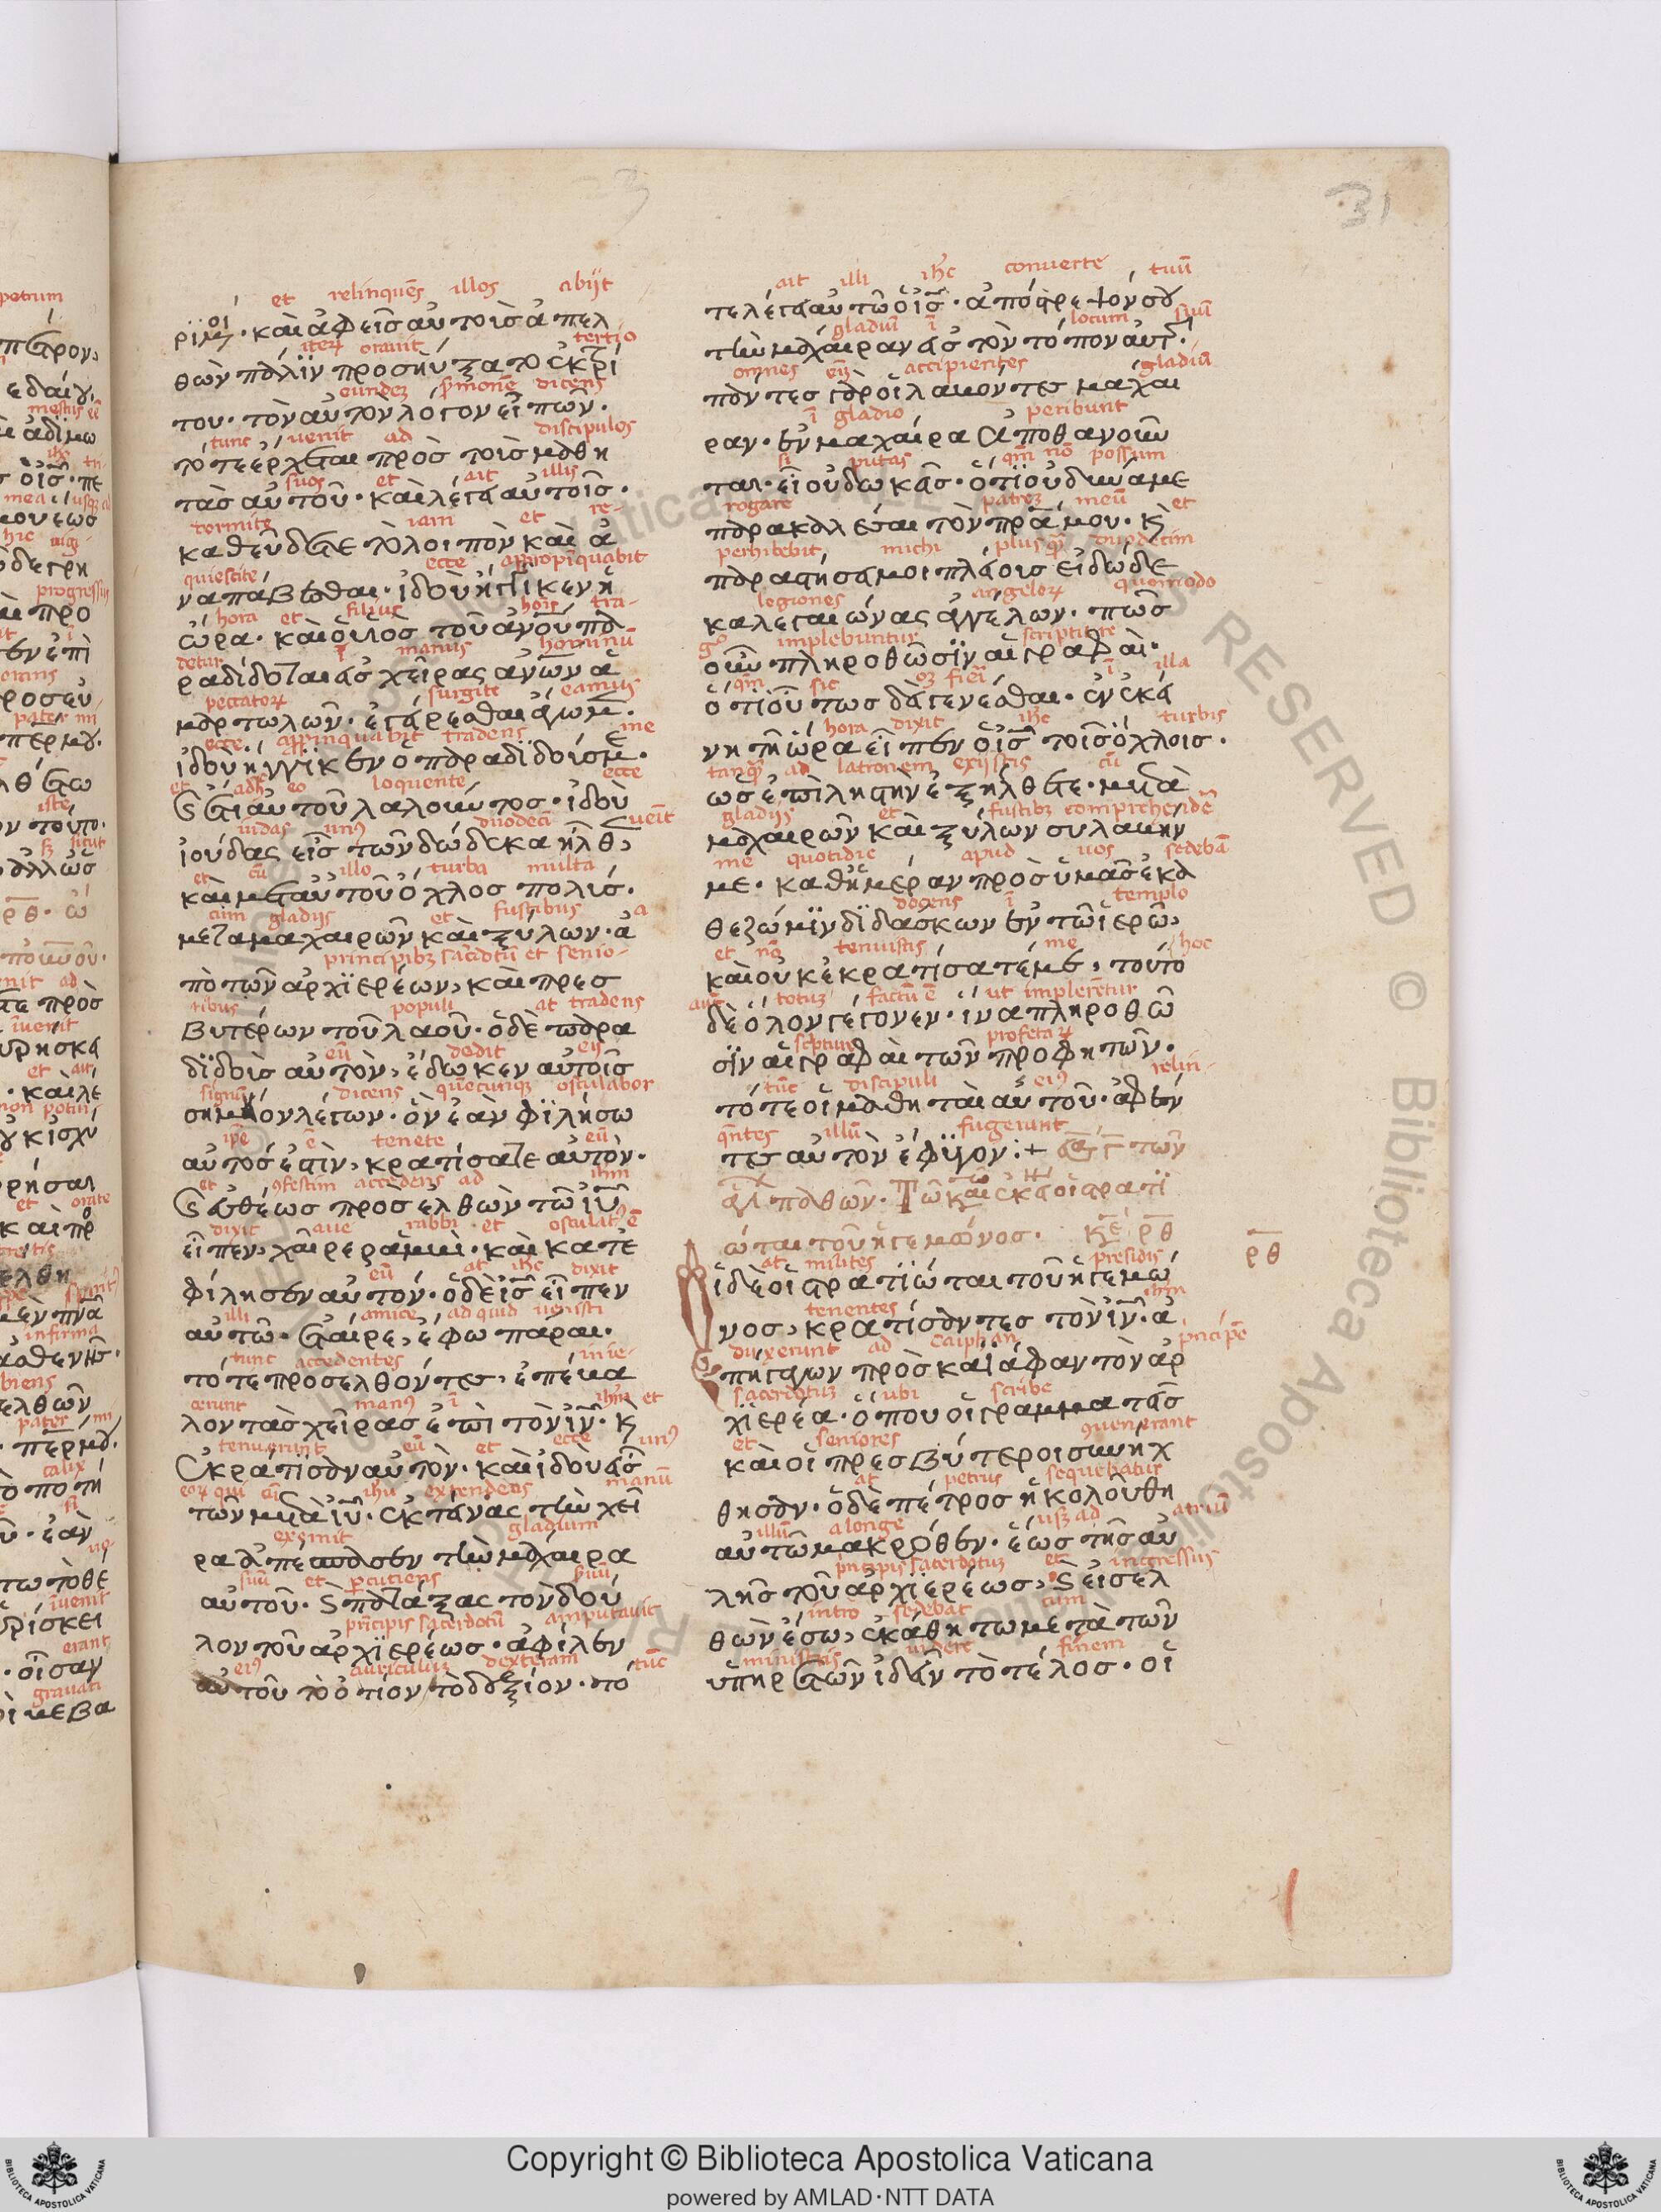 31
et relinquēs illos abijt
ριμ̅οι · καὶ ἀφεὶσ αὐτοὶσ ἀπελ
iteꝝ orauit tertio
θὼν πάλϊν προσηύξατο ἐκ τρί
eundeꝫ s̄monē dicens
του · τὸν αὐτὸν λόγον εἶπὼν ·
tunc uenit ad discipulos
τότε ἔρχεται πρὸσ τοὶσ μαθη
suos et ait illis
τὰσ αὐτοῦ · καὶ λέγει αὐτοῖσ ·
dormite iam et re-
καθεῦδετε τὸ λοιπὸν καὶ ἀ
quiescite ecce appropīquabit
ναπάβεσθαι · ἰδοὺ ἤγγικεν ἡ
hora et filius hoīs tra-
ὥρα · καὶ ὁ υἱὸσ τοῦ ἀνο̅υ πα
detur ī manus hominū
ραδίδοται εἰσ χεῖρας ἀνω̅ν ἁ
peccatoꝝ surgite eamus
μαρτωλῶν · ἐγείρεσθαι ἄγωμ̅ ·
ecce app̄inquabit tradens me
ἰδοὺ ἤγγϊκεν ὁ παραδϊδοίσ με ·
et adhc eo loquente ecce
Ϛ ἔτι αὐτοῦ λαλοῦντοσ · ἰδοὺ
iudas unꝰ duodeci ueīt
ἰούδας εἷσ τῶν δώδεκα ἦλθε,
et cū illo turba multa
καὶ μετ αὐτοῦ ὄχλοσ πολύσ ·
cum gladijs et fustibus a
μετα μαχαιρῶν καὶ ξύλων · ἀ
principibꝫ sac̄dotū et senio-
πὸ τῶν ἀρχϊερέων, καὶ πρεσ
ribus populi at tradens
βυτέρων τοῦ λαοῦ · ὁ δὲ παρα
eū dedit eis
δϊδοὶσ αὐτὸν, ἔδωκεν αὐτοῖσ
signū dicens quecunqꝫ osculabor
σημεῖον λέγων · ὃν ἐὰν φϊλήσω
ip̄e ē tenete eū
αὐτοσ ἐστὶν, κρατίσατε αὐτὸν ·
et ꝯfestim accedens ad ihm
Ϛ εὐθέωσ προσελθὼν τῶ ἰυ̅
dixit aue rabbi et osculatꝰ ē
εἶπεν, χαῖρε ραββὶ · καὶ κατε
eū at ihc dixit
φίλησεν αὐτόν · ὁ δὲ ἰσ̅ εἶπεν
illi amice ad quid uenisti
αὐτῶ · ἑταίρε, ἐφω πάρει ·
tunc accedentes inie-
τότε προσελθόντεσ, ἐπέβα
cerunt manꝰ ī ihm et
λον τὰσ χεῖρασ ἐπὶ τὸν ἰν̅ · κ
tenuerunt eū et ecce unꝰ
ἐκράτϊσαν αὐτὸν · καὶ ἰδοὺ εἷσ
eoꝝ qui cū ihu extendens manū
τῶν μετὰ ἰυ̅ · ἐκτείνας τὴν χεῖ
exemit gladium
ρα ἀπέσπασεν τὴν μάχαιρα
suū et p̄cutiens suū
αὐτοῦ · Ϛ πατάξας τὸν δού
prīcipis sac̄dotū amputauit
λον τοῦ ἀρχϊερέωσ · ἀφίλεν
eiꝰ auriculaꝫ dexteram tūc
αὐτοῦ τὸ ὀτίον τὸ δεξίόν · τό
ait illi ihc conuerte tuū
τε λέγει αὐτῶ ὁ ἰσ̅ · ἀπόστρεψον σου
gladiū ī locum suū
τὴν μάχαιραν εἰσ τὸν τόπον αὐτῆσ ·
omnes eīꝫ accipientes gladiū
πάντεσ γὰρ οἱ λαβόντεσ μάχαι
ī gladio peribunt
ραν · ἐν μαχαίρα ἀποθανοῦν
si putas qm̄ nō possum
ται · εἶ οὐ δωκεῖσ · ὅτϊ οὐ δυνάμε
rogare patreꝫ meū et
παρακαλέσαι τὸν πρα̅ μου · κ
perhibebit michi plus qꝫ duodecim
παραστήσει μοι πλείοισ εἰ δώδε
legiones angeloꝝ quomodo
κα λεγαιώνας ἀγγέλων · πῶσ
gᵒ implebuntur scripture
οὖν πληροθῶσϊν αἱ γραφαὶ ·
qm̄ sic oꝫ fiei ī illa
ὅτϊ οὕτωσ δεῖ γενέσθαι · ἐν ἐκεί
hora dixit ihc turbis
νη τῆ ὥρα εἶπεν ὁ ἰσ̅ τοῖσ ὄχλοισ ·
tanqꝫ ad latronem exijstis cū
ὡσ ἐπὶ ληστὴν ἐξήλθετε · μετὰ
gladijs et fustibꝫ comprehendē
μαχαιρῶν καὶ ξύλων συλαβὴν
me quotidie apud uos sedebā
με · καθημέραν πρὸσ ὑμᾶσ ἐκα
docens ī templo
θεζώμϊν δϊδάσκων ἐν τῶ ἱερῶ,
et nō tenuistis me hoc
καὶ οὐκ ἐκρατίσατέ με, τοῦτο
aut̄ totuꝫ factū ē ut implerētur
δὲ ὅλον γέγονεν · ἵνα πληροθῶ
sc̄pture profetaꝝ
σϊν αἱ γραφαὶ τῶν προφητῶν ·
tūc discipuli eiꝰ relin-
τότε οἱ μαθηταὶ αὐτοῦ · ἀφέν
qn̄tes illū fugerunt
τεσ αὐτὸν ἔφϊγον :+
ώται τοῦ ἡγεμώνοσ · κε̅ ρθ̅
ρθ̅
at milites presidis
ϊ δὲ οἱ στρατϊώται τοῦ ἡγεμώ
tenentes ihm
νοσ, κρατίσαντεσ τὸν ἰν̅ · ἀ
duxerunt ad caiphan pncipē
πήγαγον πρὸσ καϊάφαν τὸν ἀρ
sacerdotuꝫ ubi scribe
χϊερέα · ὅπου οἱ γραμματεῖσ
et seniores ꝯuenerant
καὶ οἱ πρεσβύτεροι συνήχ
at petrus sequebatur
θησαν · ὁ δὲ πέτροσ ἠκολούθη
illū a longe usqꝫ ad atriū
αὐτῶ μακρόθεν · ἕωσ τῆσ αὐ
pncipis sacerdotuꝫ et ingressus
λῆσ τοῦ ἀρχϊερέωσ, Ϛ εἰσελ
intro sedebat cum
θὼν ἔσω, ἐκάθητω μετὰ τῶν
ministris uidere finem
ὑπηρετῶν ἰδεῖν τὸ τέλοσ · οἱ
Copyright © Biblioteca Apostolica Vaticana
powered by AMLAD·NTT DATA